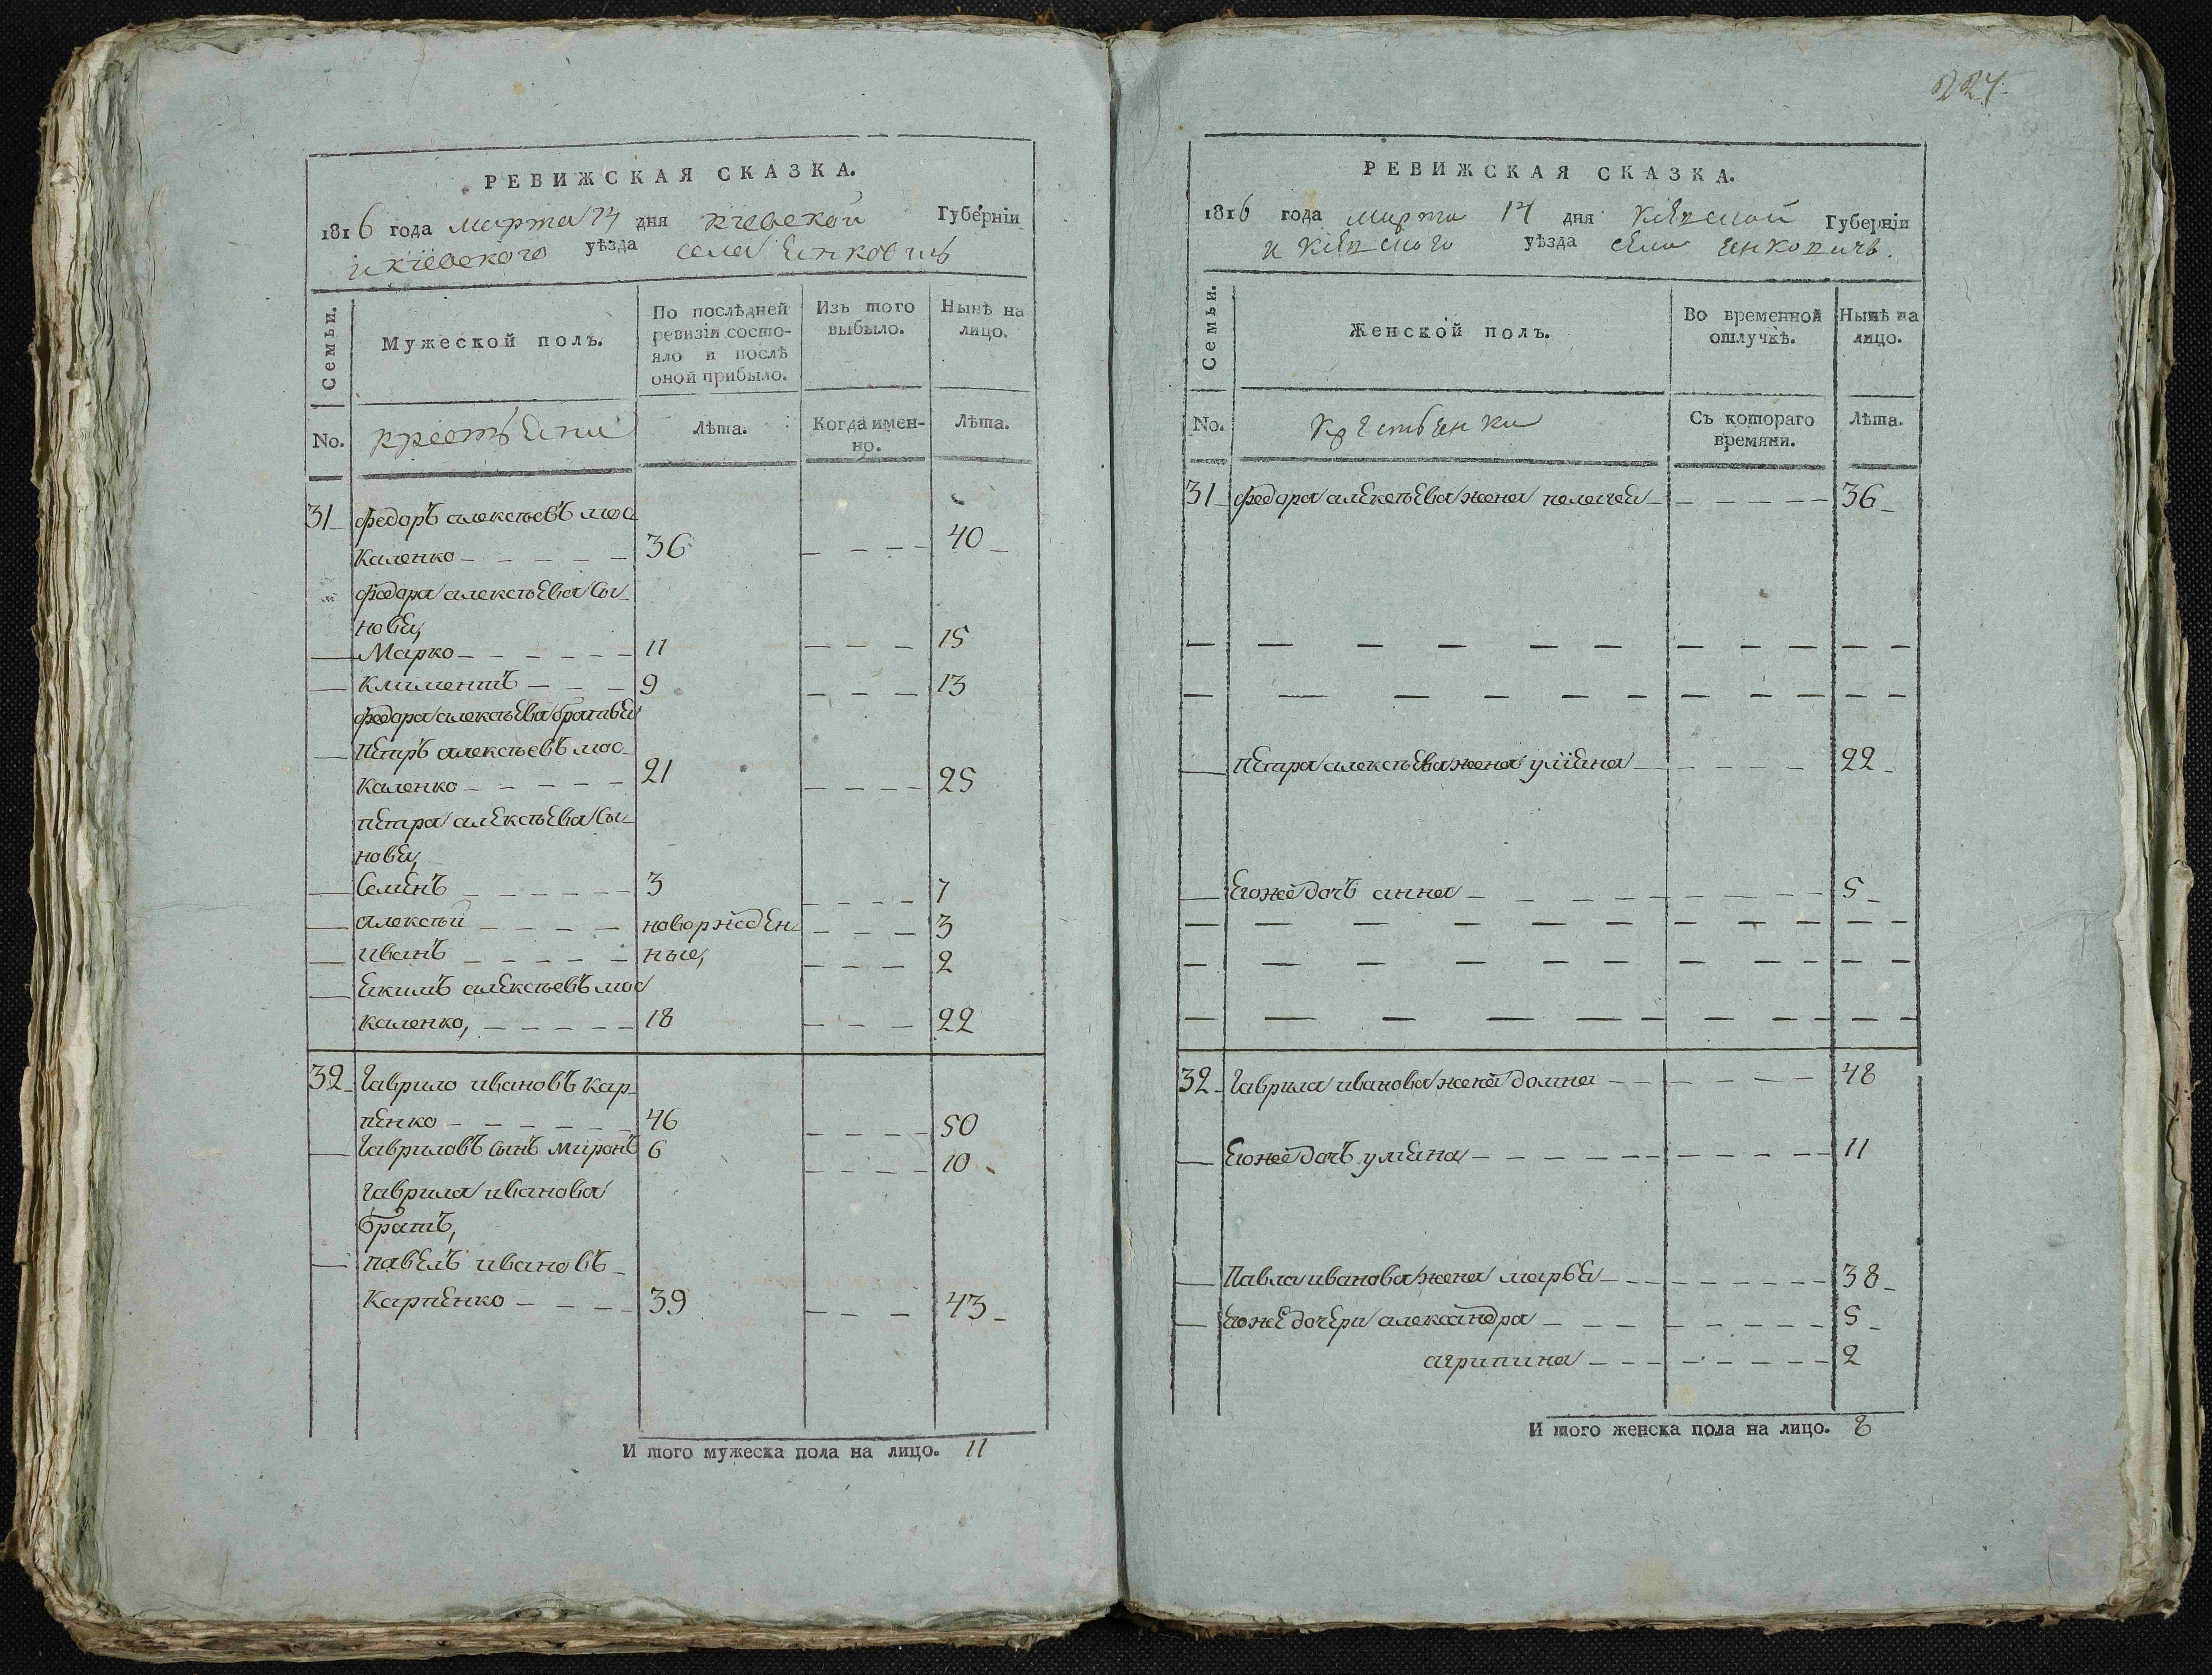 РЕВИЖСКАЯ СКАЗКА.
1816 года марта 14 дня кіевской Губерніи
и кіевского уѣзда села Янковичъ
Семьи.
Мужеской полъ.
По послѣдней ревизіи состо-
яло и послѣ оной прибыло.
Изъ того выбыло.
Нынѣ на лицо.
No. крестьяни Лѣта. Когда имен-
но. Лѣта.
31 федоръ алексѣевъ мос
каленко 36 40
федора алексѣева сы
новя,
Марко 11 15
климентъ 9 13
федора алексѣева братья
Петръ алексѣевъ мос
каленко 21 25
петра алексѣева сы
новя,
Семенъ 3 7
алексѣй новорждѣн 3
иванъ ные, 2
Екимъ алексѣевъ мос
каленко, 18 22
32 гаврило ивановъ кар
пенко 46 50
гавриловъ сынъ миронъ 6 10
гаврила иванова
братъ,
павелъ ивановъ
Карпенко 39 43
И того мужеска пола на лицо. 11
224
РЕВИЖСКАЯ СКАЗКА.
1816 года марта 14 дня кіевской Губерніи
и кіевского уѣзда села Янковичъ.
Семьи.
Женской полъ.
Во временной отлучкѣ.
Нынѣ на лицо.
No. крестьянки Съ котораго
времяни. Лѣта.
31 федора алексѣева жена пелагея 36
петра алексѣева жена улияна 22
Егоже дочъ анна 5
32 гаврила иванова жена домна 48
Егоже дочъ уляна 11
Павла иванова жена марья 38
Егоже дочери александра 5
агрипина 2
И того женска пола на лицо. 8